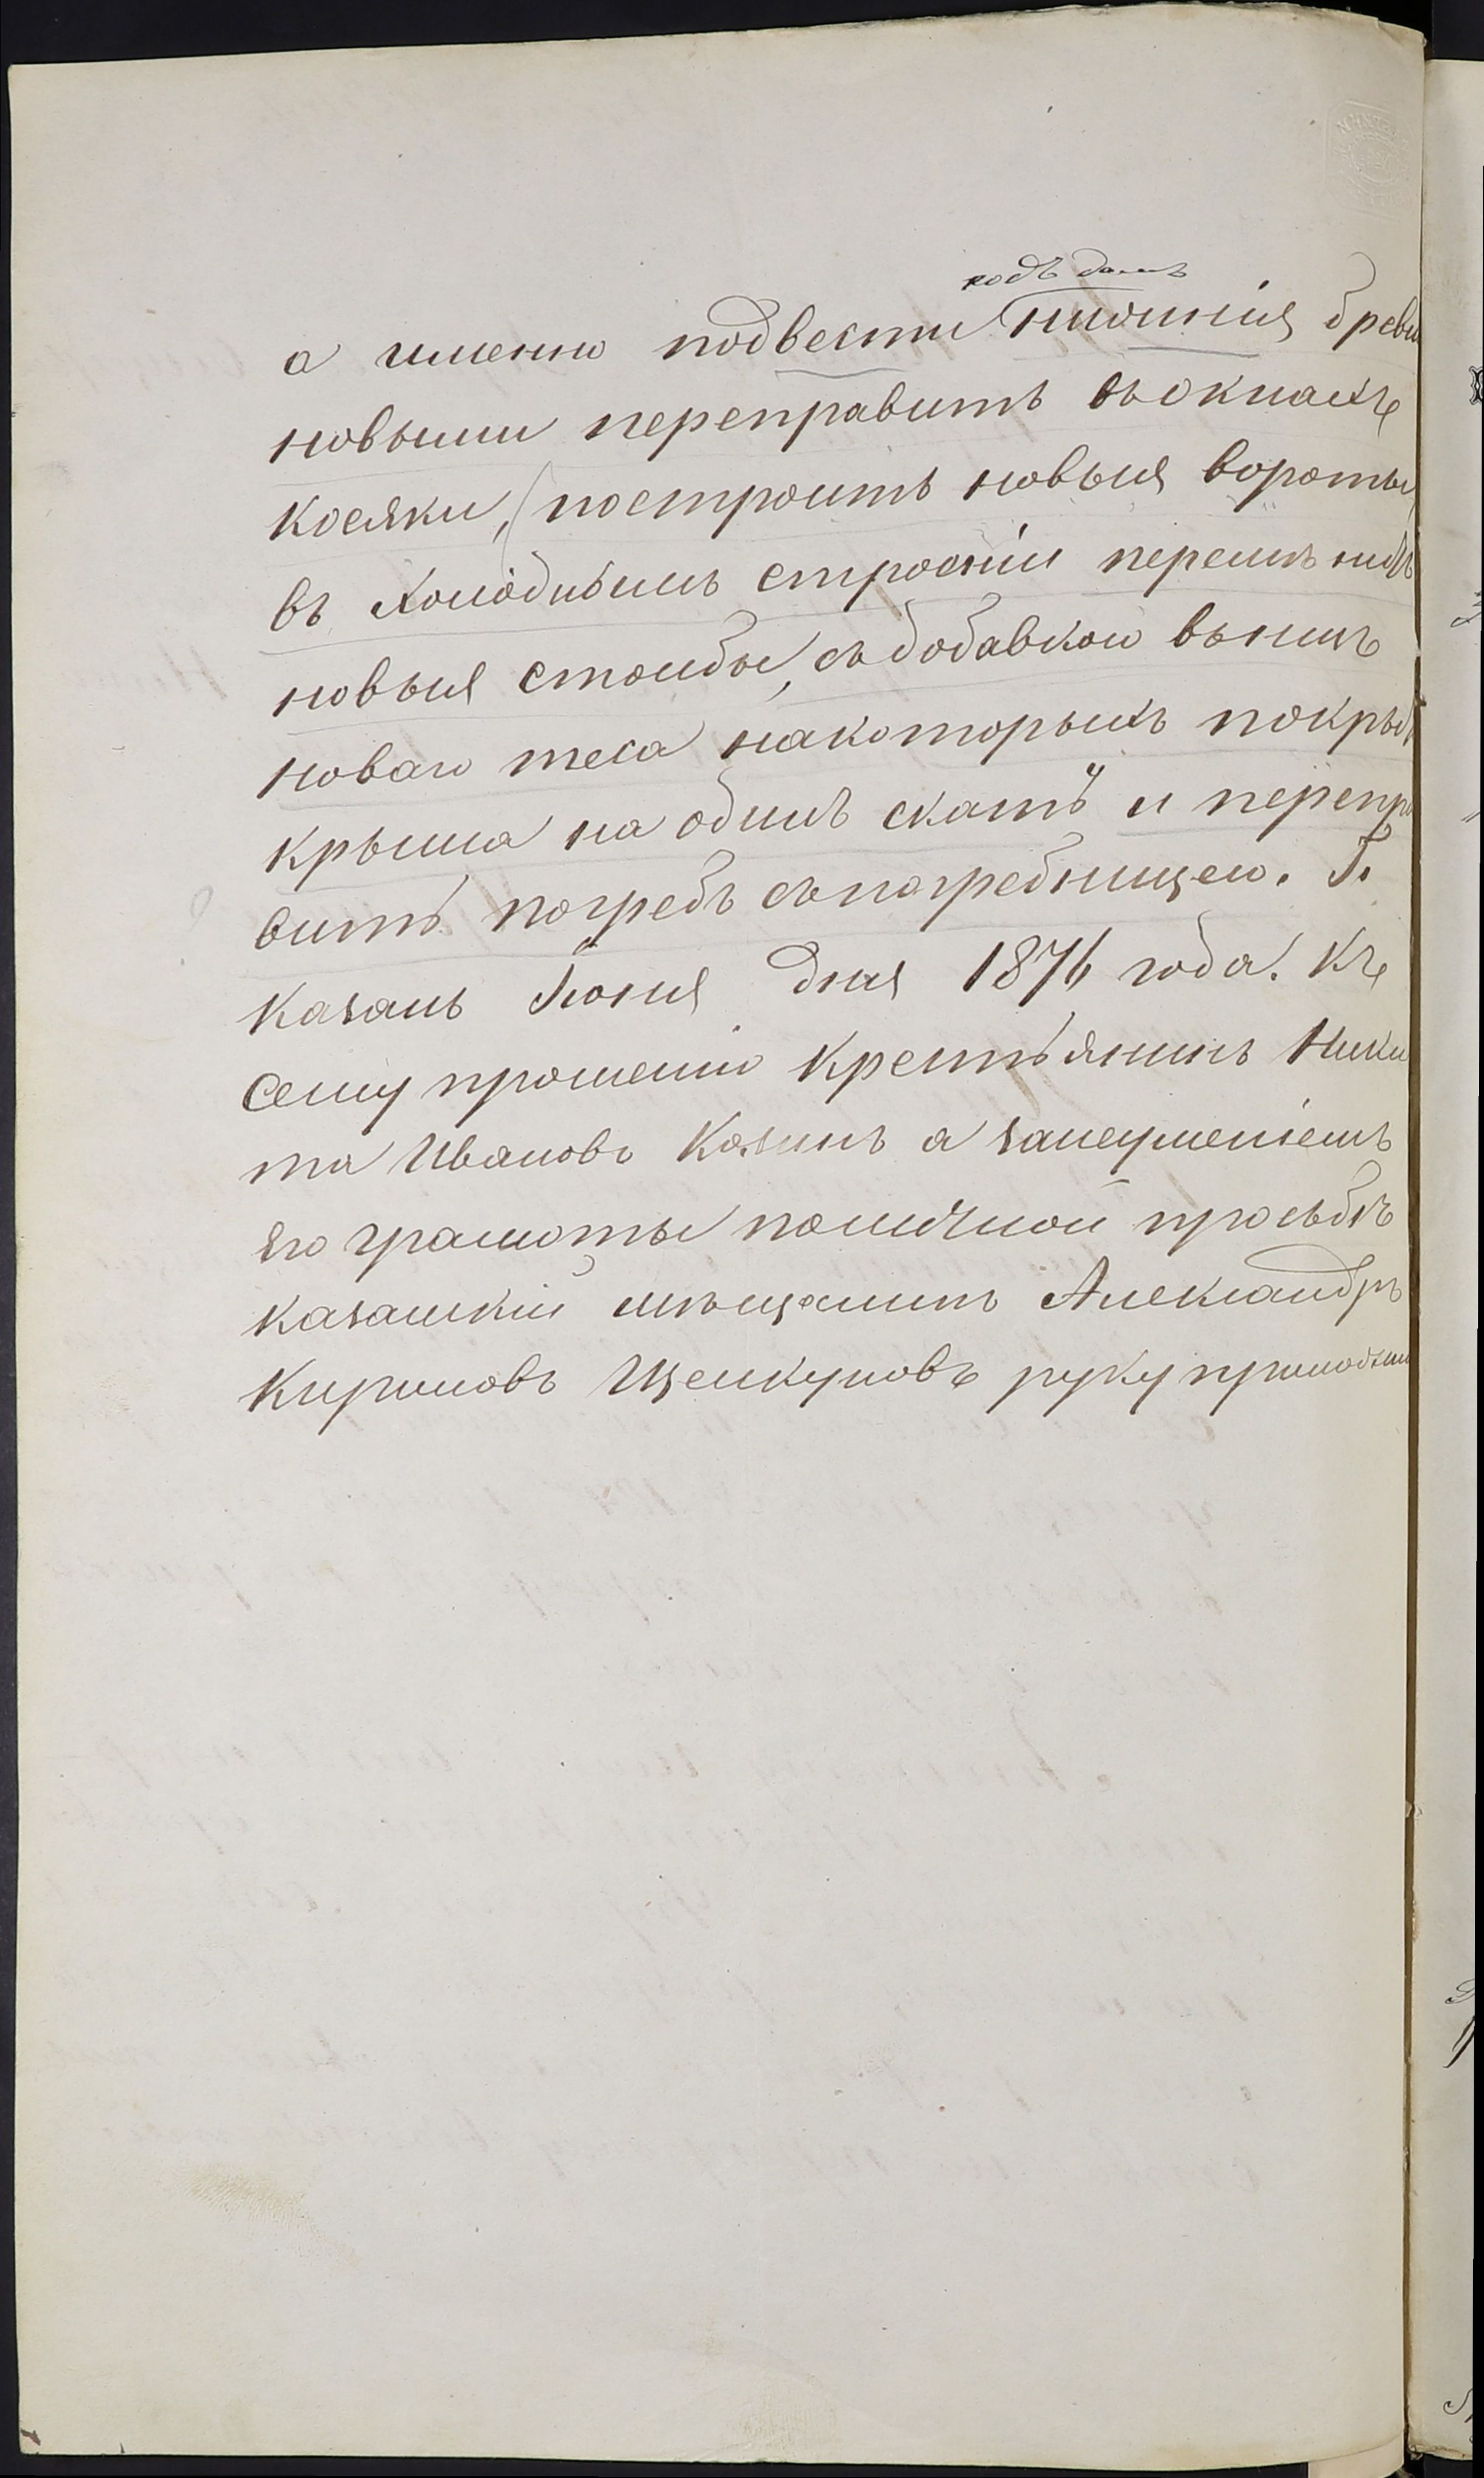 подъ домъ
а именно подвести нижнія бревн
новыми переправить въ окнахъ
косяки, построить новыя вороты,
въ холодномъ строеніи перемѣнить
новыя столбы, съ добавкой въ нихъ
новаго теса на которыхъ покрыть
крыша на одинъ скатъ и перепра
вить погребъ съ погребницею. Г.
Казань Іюня дня 1876 года. Къ
сему прошенію крестьянинъ Ники
та Ивановъ а за неумѣніемъ
его грамоты по личной просьбѣ
казанскій мѣщанинъ Александръ
Кириловъ Щелкуновъ руку приложилъ